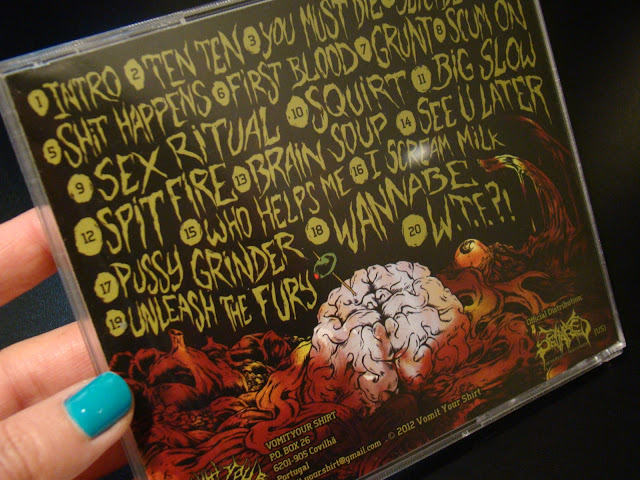 1 INTRO 2 TEN TEN 3 YOU MUST DIE
5 SHIT HAPPENS 6 FIRST BLOOD 7 GRUNT 8 SCUM ON
9 SEX RITUAL 10 SQUIRT 11 BIG SLOW
12 SPIT FIRE 13 BRAIN SOUP 14 SEE U LATER
15 WHO HELPS ME 16 I SCREAM MILK
17 PUSSY GRINDER 18 WANNABE
19 UNLEASH THE FURY 20 W.T.F.?!
Official Distribution:
(US)
VOMIT YOUR SHIRT
P.O. BOX 26
6201-905 Covilhã
Portugal
yourshirt@gmail.com © 2012 Vomit Your Shirt